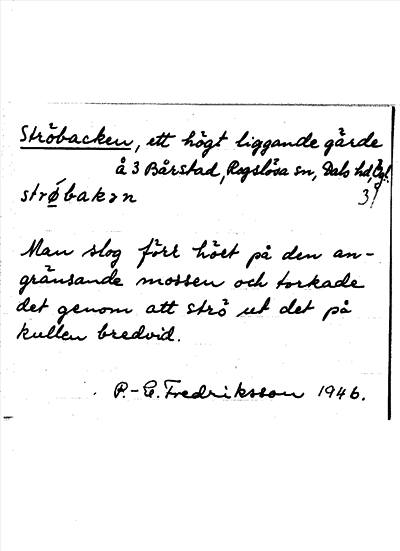 Ströbacken, ett högt liggande gärde
å 3 Bårstad, Rogslösa sn, Dals hd, Ög.
strø̀bakən 31
Man slog förr höet på den an-
gränsande mossen och torkade
det genom att strö ut det på
kullen bredvid.
P.-E. Fredriksson 1946.